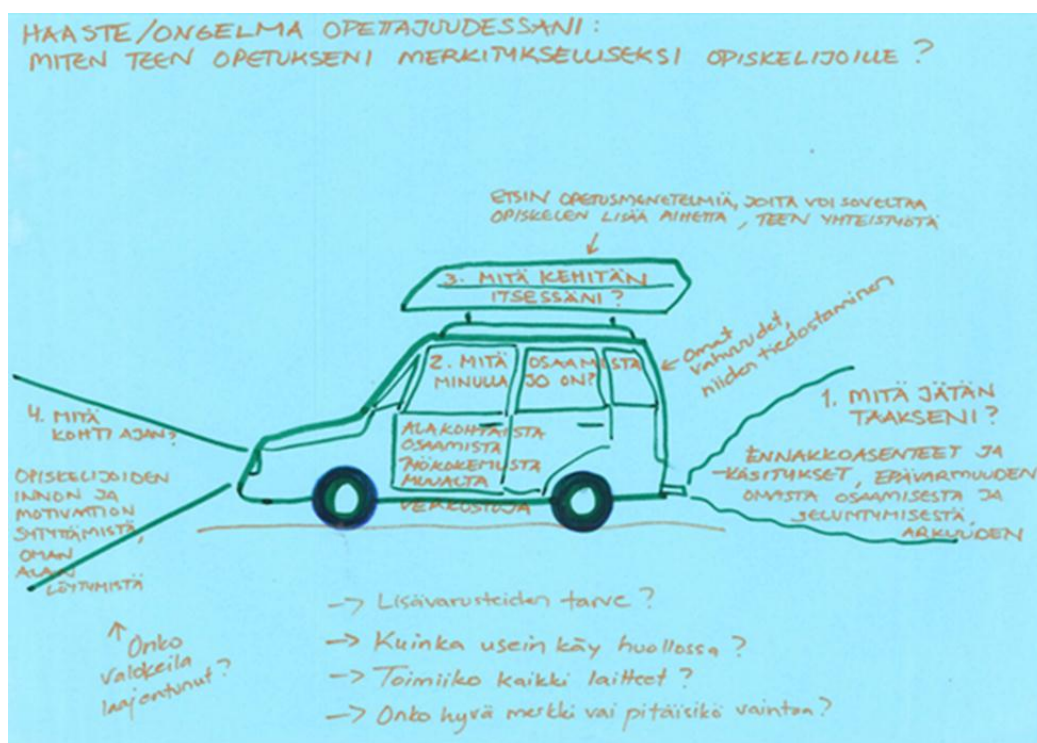 HAASTE/ONGELMA OPETTAJUUDESSANI:
MITEN TEEN OPETUKSENI MERKITYKSELLISEKSI OPISKELIJOILLE?
ETSIN OPETUSMENETELMIÄ, JOITA VOI SOVELTAA
OPISKELEN LISÄÄ AIHETTA, TEEN YHTEISTYÖTÄ
3. MITÄ KEHITÄN
ITSESSÄNI?
Omat
vahvuudet,
niiden tiedostaminen
2. MITÄ OSAAMISTA
MINULLA JO ON?
ALAKOHTAISTA
OSAAMISTA
TYÖKOKEMUSTA
MUUALTA
VERKOSTOJA
1. MITÄ JÄTÄN
TAAKSENI?
ENNAKKOASENTEET JA
-KÄSITYKSET, EPÄVARMUUDEN
OMASTA OSAAMISESTA JA
SELVIYTYMISESTÄ,
ARKUUDEN
4. MITÄ
KOHTI AJAN?
OPISKELIJOIDEN
INNON JA
MOTIVAATION
SYTYTTÄMISTÄ,
OMAN
ALAN
LÖYTYMISTÄ
Onko
valokeila
laajentunut?
-> Lisävarusteiden tarve?
-> Kuinka usein käy huollossa?
-> Toimiiko kaikki laitteet?
-> Onko hyvä merkki vai pitäisikö vaihtaa?